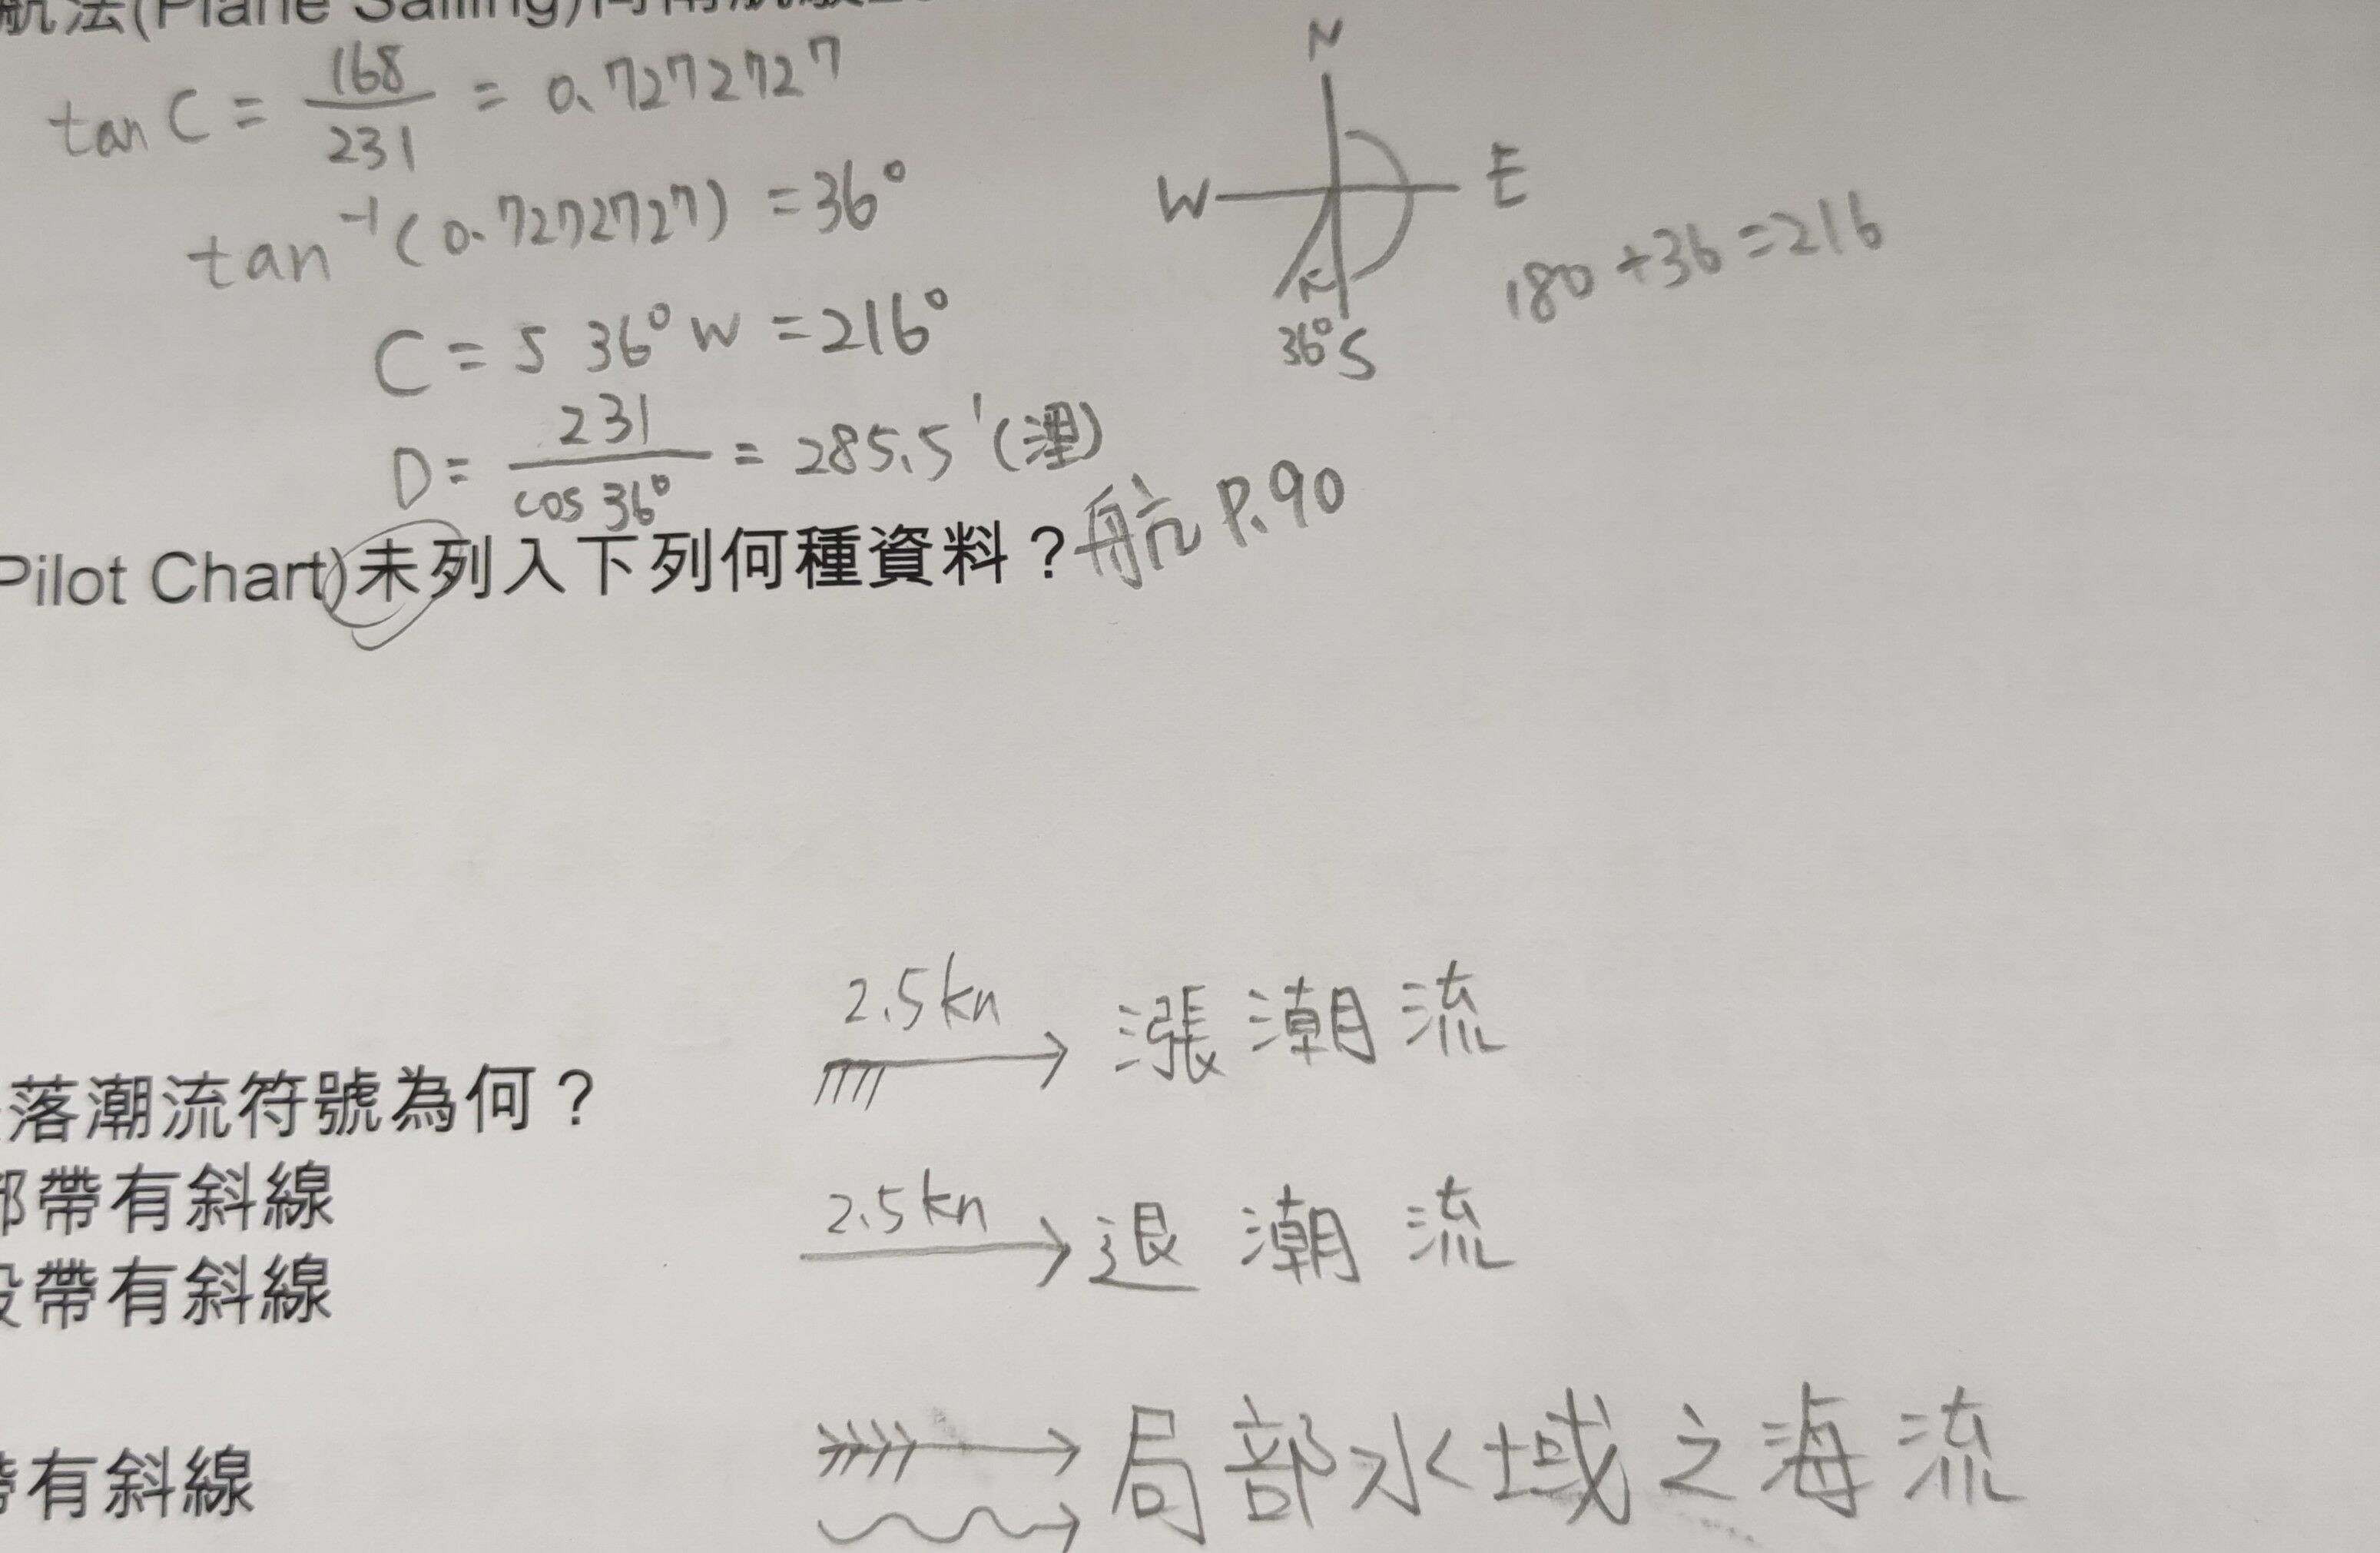 航法(Plane Sailing)向南航駛
tan C = 168/231 = 0.7272727
tan⁻¹(0.7272727) = 36°
C = S 36° W = 216°
D = 231/cos 36° = 285.5'(浬)
N
W
E
36° S
180 + 36 = 216
Pilot Chart)未列入下列何種資料？航 P.90
2.5 kn 漲潮流
落潮流符號為何？
部帶有斜線
2.5 kn 退潮流
段帶有斜線
帶有斜線
局部水域之海流